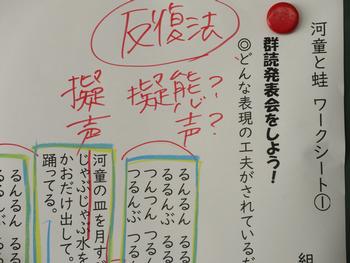 河童と蛙 ワークシート①
組
群読発表会をしよう！
◎どんな表現の工夫がされているだ
反復法
擬態？
声？
擬
声
るんるん る
るんるん る
つんつん つ
つるんぶ つ
河童の皿を月すべ
じゃぶじゃぶ水を
かおだけ出して。
踊ってる。
るんるん
るんぶ
つるん